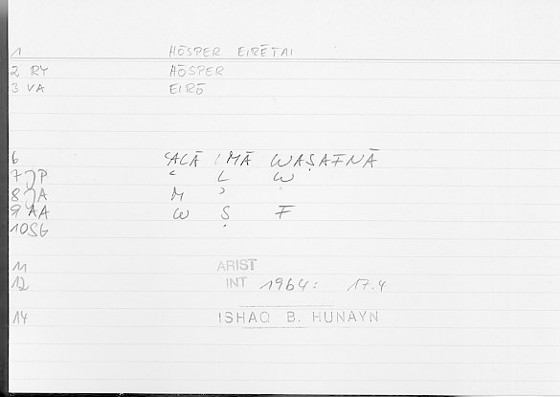 1 HŌSPER EIRĒTAI
2 RY HŌSPER
3 VA EIRŌ
6 ʿALĀ ʾMĀ WAṢAFNĀ
7 JP ʿ L W
8 JA M ʾ
9 AA W Ṣ F
10 SG
11 ARIST
12 INT 1964: 17.4
14 ISHAQ B. HUNAYN